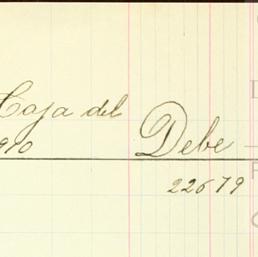 Caja del Debe
910
22679